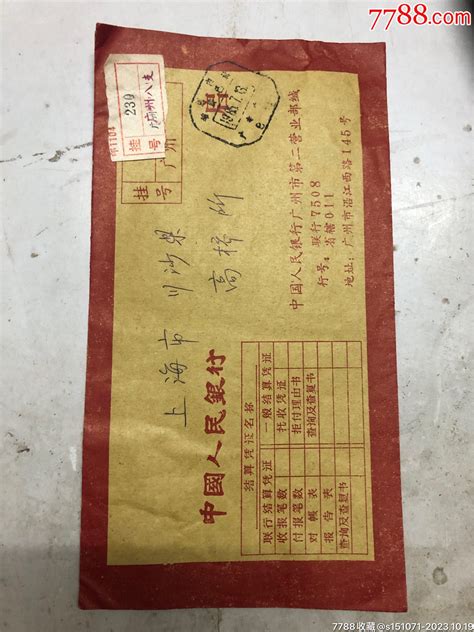 7788.com
230
广州八支
挂号
广州
挂号
上海市川沙县
高桥所
中国人民银行广州市第二营业部缄
联行7508
行号4省辖011
地址：广州市沿江西路145号
中國人民銀行
结算凭证名称
联行结算凭证
一般结算凭证
收报笔数
托收凭证
付报笔数
拒付理由书
对帐表
查询及查复书
报告表
查询及查复书
7788收藏@s151071-2023.10.19